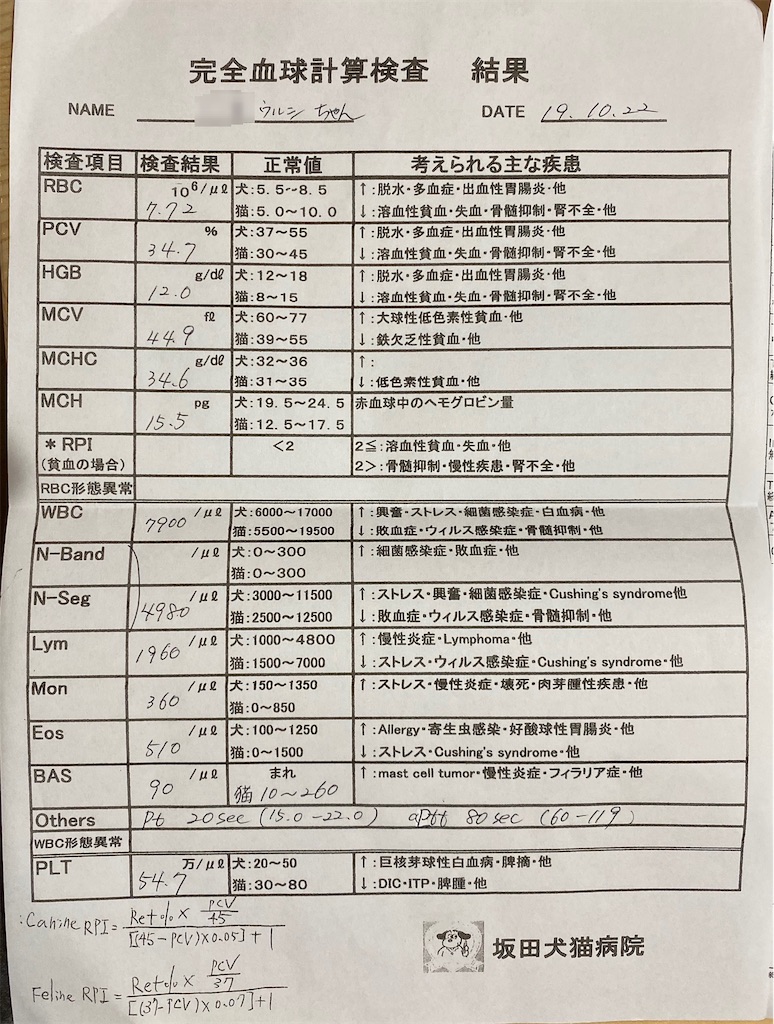 完全血球計算検査 結果
NAME ウルシ ちゃん DATE 19.10.22
検査項目 検査結果 正常値 考えられる主な疾患
RBC 10⁶/μℓ 犬:5.5~8.5 ↑:脱水・多血症・出血性胃腸炎・他
7.72 猫:5.0~10.0 ↓:溶血性貧血・失血・骨髄抑制・腎不全・他
PCV % 犬:37~55 ↑:脱水・多血症・出血性胃腸炎・他
34.7 猫:30~45 ↓:溶血性貧血・失血・骨髄抑制・腎不全・他
HGB g/dℓ 犬:12~18 ↑:脱水・多血症・出血性胃腸炎・他
12.0 猫:8~15 ↓:溶血性貧血・失血・骨髄抑制・腎不全・他
MCV fℓ 犬:60~77 ↑:大球性低色素性貧血・他
44.9 猫:39~55 ↓:鉄欠乏性貧血・他
MCHC g/dℓ 犬:32~36 ↑:
34.6 猫:31~35 ↓:低色素性貧血・他
MCH pg 犬:19.5~24.5 赤血球中のヘモグロビン量
15.5 猫:12.5~17.5
*RPI <2 2≦:溶血性貧血・失血・他
(貧血の場合) 2>:骨髄抑制・慢性疾患・腎不全・他
RBC形態異常
WBC /μℓ 犬:6000~17000 ↑:興奮・ストレス・細菌感染症・白血病・他
7900 猫:5500~19500 ↓:敗血症・ウィルス感染症・骨髄抑制・他
N-Band /μℓ 犬:0~300 ↑:細菌感染症・敗血症・他
猫:0~300
N-Seg /μℓ 犬:3000~11500 ↑:ストレス・興奮・細菌感染症・Cushing's syndrome他
4980 猫:2500~12500 ↓:敗血症・ウィルス感染症・骨髄抑制・他
Lym /μℓ 犬:1000~4800 ↑:慢性炎症・Lymphoma・他
1960 猫:1500~7000 ↓:ストレス・ウィルス感染症・Cushing's syndrome・他
Mon /μℓ 犬:150~1350 ↑:ストレス・慢性炎症・壊死・肉芽腫性疾患・他
360 猫:0~850
Eos /μℓ 犬:100~1250 ↑:Allergy・寄生虫感染・好酸球性胃腸炎・他
510 猫:0~1500 ↓:ストレス・Cushing's syndrome・他
BAS /μℓ まれ ↑:mast cell tumor・慢性炎症・フィラリア症・他
90 猫10~260
Others Pt 20sec (15.0-22.0) aPtt 80sec (60-119)
WBC形態異常
PLT 万/μℓ 犬:20~50 ↑:巨核芽球性白血病・脾摘・他
54.7 猫:30~80 ↓:DIC・ITP・脾腫・他
:Canine RPI= Ret%× PCV/45
[(45-PCV)×0.05]+1
坂田犬猫病院
Feline RPI= Ret%× PCV/37
[(37-PCV)×0.07]+1